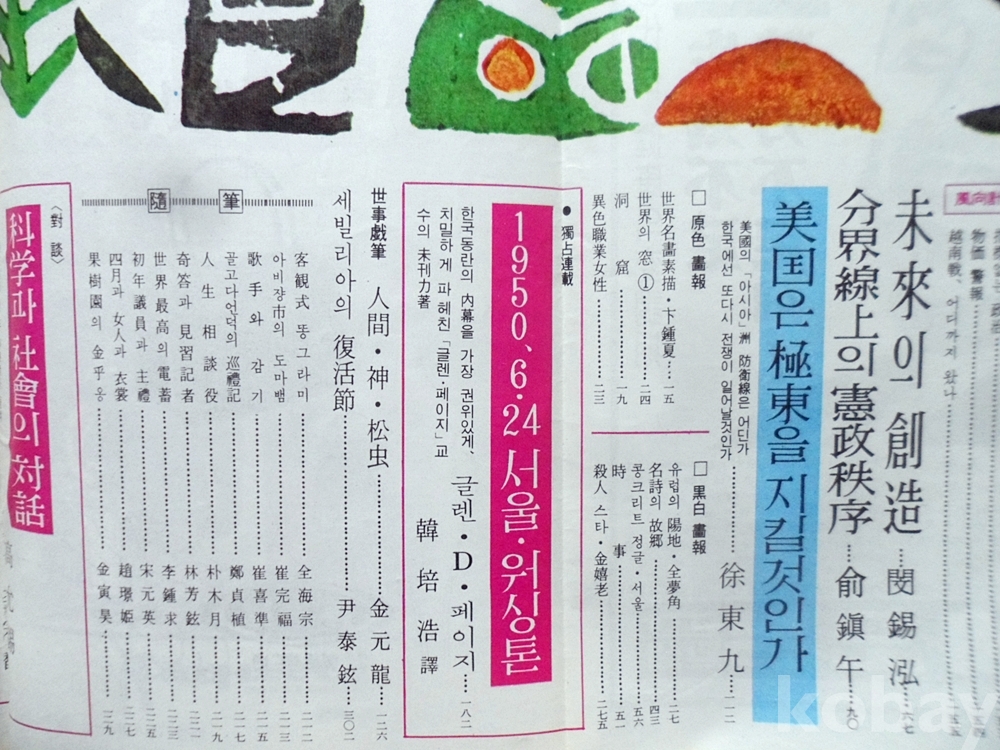 風向計
物価 警報
越南戰、어디까지 왔나
未來의 創造……閔錫泓……六七
分界線上의 憲政秩序……俞鎭午……九〇
美国은 極東을 지킬것인가
美國의 「아시아」洲 防衛線은 어딘가
한국에선 또다시 전쟁이 일어날것인가……徐東九……一二
□ 原色 畫報
世界名畫素描・卞鍾夏……一五
世界의 窓①……二四
洞窟……一九
異色職業女性……二三
□ 黒白 畫報
유럽의 陽地・全夢角……二七
名詩의 故郷……四三
콩크리트 정글・서울……五六
時事……五一
殺人 스타・金嬉老……二七五
● 獨占連載
1950、6・24 서울・워싱톤
한국동란의 內幕을 가장 권위있게、
치밀하게 파헤친 「글렌・페이지」교
수의 未刊力著
글렌・D・페이지……一八二
韓培浩 譯
世事戱筆 人間・神・松虫……金元龍……一二六
세빌리아의 復活節……尹泰鉉……三〇二
隨筆
客観式 똥그라미……全海宗……二一二
아비쟝市의 도마뱀……崔完福……二一三
歌手와 감기……崔喜準……二一五
골고다언덕의 巡禮記……鄭貞植……二一七
人生相談役……朴木月……二一九
奇答과 見習記者……林芳鉉……二二一
世界最高의 電蓄……李鍾求……二二三
初年議員과 主禮……宋元英
四月과 女人과 衣裳……趙璟姬
果樹園의 金平옹……金寅昊……二二九
〈對談〉
科学과 社會의 対話
kobay